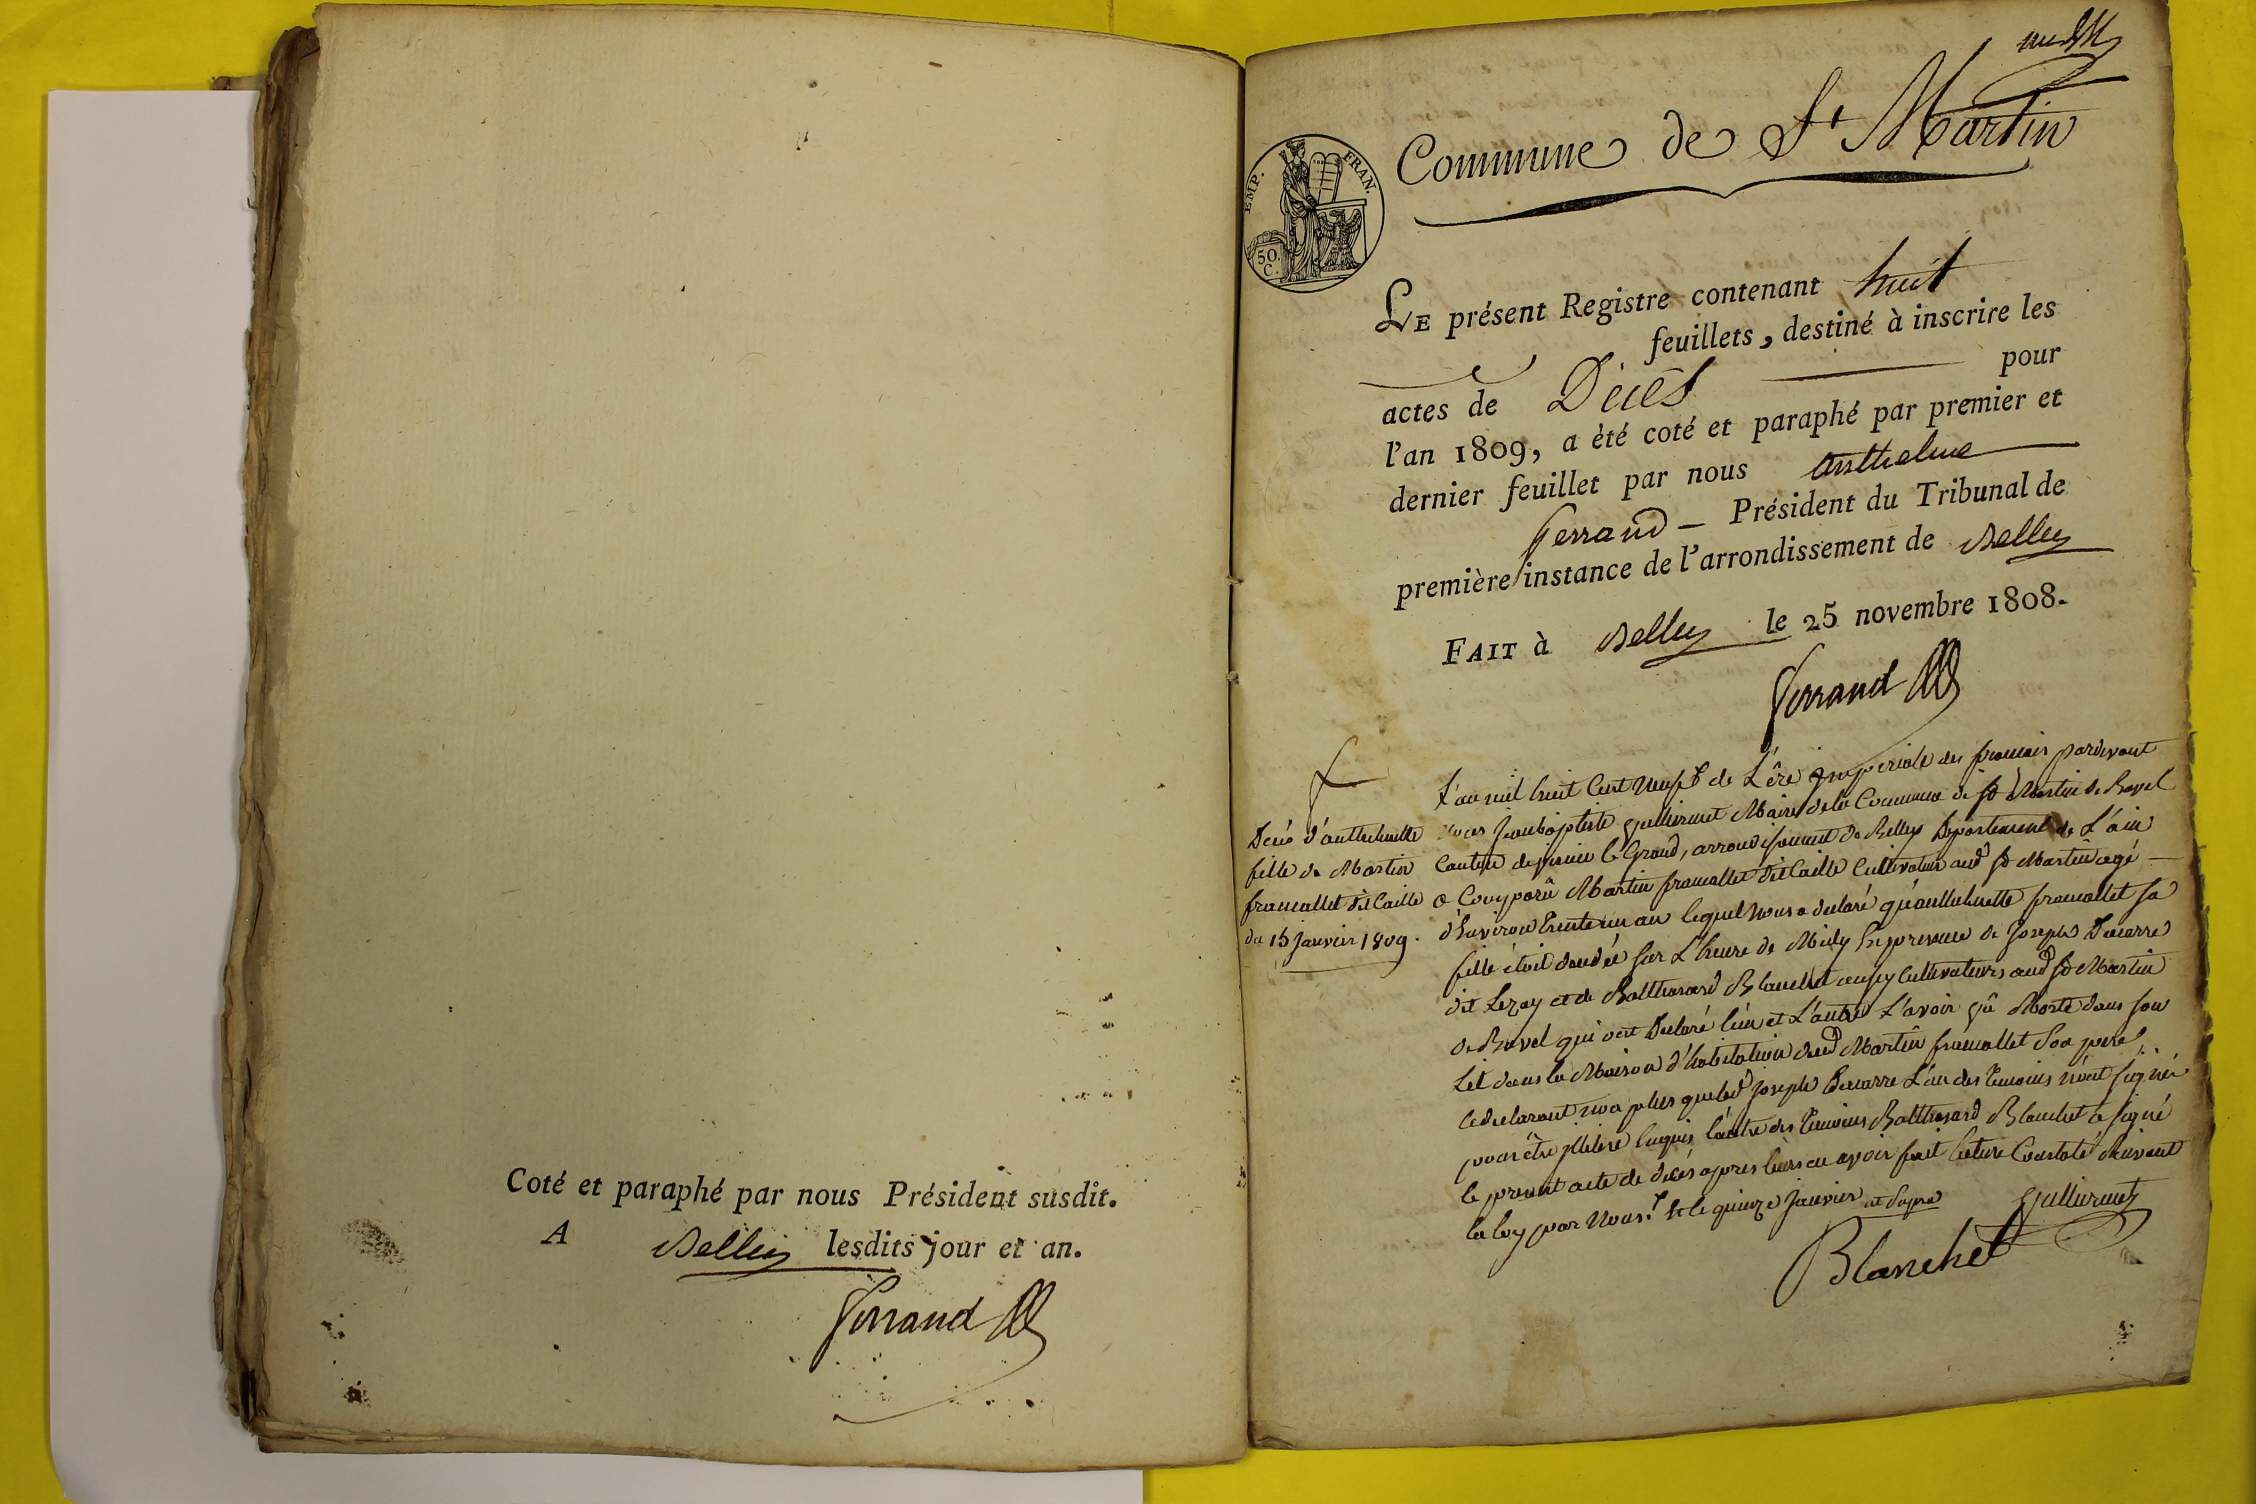 Coté et paraphé par nous Président susdit.
A Belley lesdits jour et an.
Ferrand
Commune de St Martin
EMP. FRAN.
50.
C.
LE présent Registre contenant huit
feuillets, destiné à inscrire les
actes de Décès pour
l'an 1809, a èté coté et paraphé par premier et
dernier feuillet par nous Anthelme
Ferrand — Président du Tribunal de
première instance de l'arrondissement de Belley
FAIT à Belley le 25 novembre 1808.
Ferrand
Décés d'anthelmette
fille de Martin
framallet dit Caille
du 15 Janvier 1809.
L'an mil huit Cent Neuf & de L'ère impériale des francais pardevant
nous Jeanbaptiste Gulliermet Maire de la Commune de St Martin de Bavel
Canton de virieu le Grand, arrondissement de Belley Département de L'ain
a Comparû Martin framallet dit Caille Cultivateur aud St Martin agé
d'Environ trente un an lequel Nous a declaré qu'anthelmette framallet sa
fille étoit décédée sur L'heure de Midy En presence de Joseph Decarre
dit Lezay et de Balthazard Blanchet aussy Cultivateurs aud St Martin
de Bavel qui ont Declaré l'un et L'autre L'avoir vû Morte dans son
Lit dans la Maison d'habitation dud Martin framallet Son pere,
le declarant non plus queled Joseph Decarre L'un des temoins n'ont signés
pour être illiteré Enquis l'autre des temoins Balthazard Blanchet a signé
le present acte de décés apres leurs en avoir fait lecture Constaté Suivant
la loy par Nous. & le quinze Janvier an Supra
Gulliermet
Blanchet